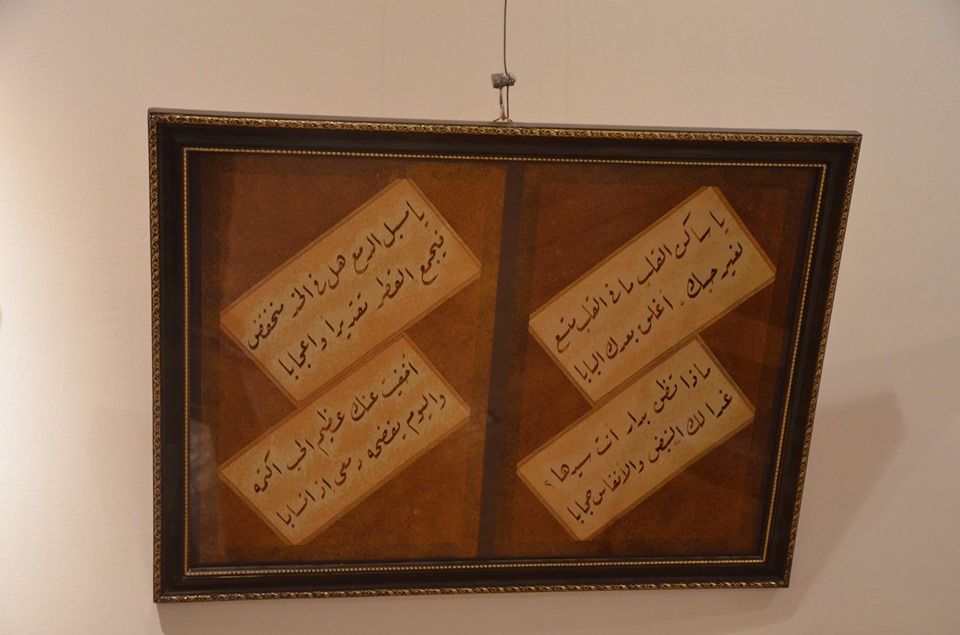 يا ساكن القلب ما في القلب متسع
لغير حبك أغلق بعدك البابا
ماذا تظن بدار أنت سيدها؟
غدا لك النبض والأنفاس حجابا
يا مسبل الدمع هل في الخد منخفض
فيجمع القطر تقديرا واعجابا
أخفيت عنك عظيم الحب اكتمه
واليوم يفضحه دمعي إذ انسابا